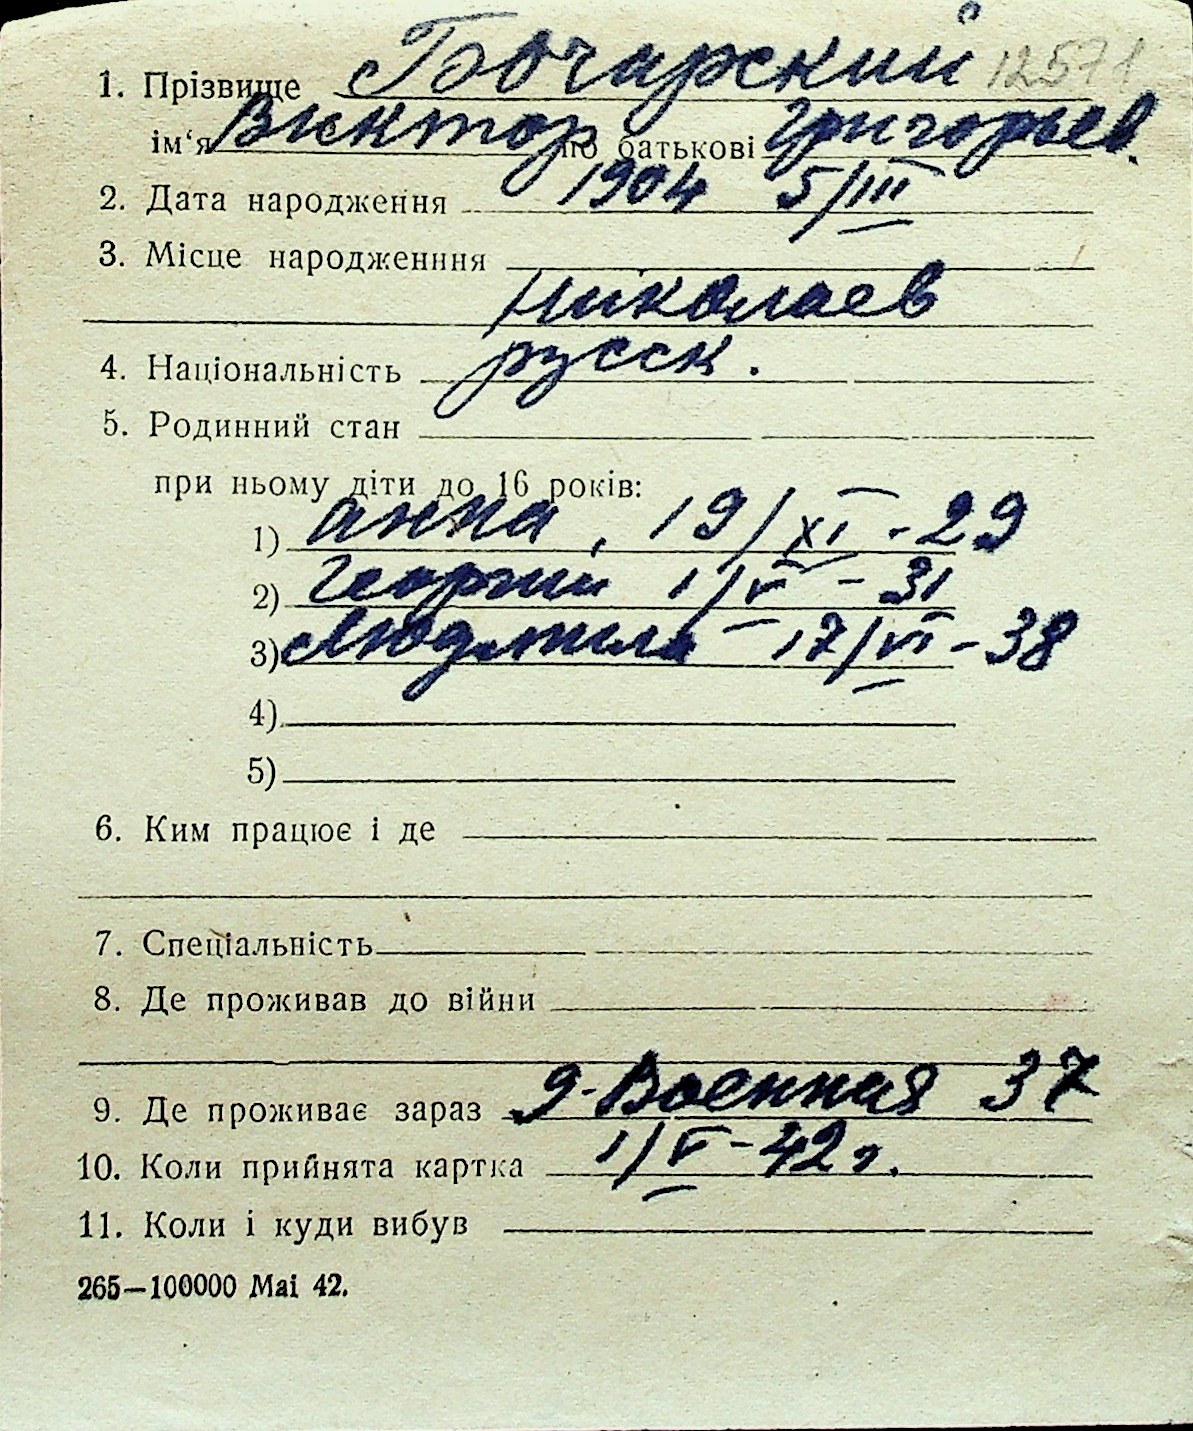 1. Прізвище Бочарский 12571
ім‘я Виктор по батькові Григорьев.
2. Дата народження 1904 5/III
3. Місце народженння
Николаев
4. Національність русск.
5. Родинний стан
при ньому діти до 16 років:
1) Анна, 19/XI - 29
2) Георгий 1/V - 31
3) Людмила - 17/VI - 38
4)
5)
6. Ким працює і де
7. Спеціальність
8. Де проживав до війни
9. Де проживає зараз 9-Военная 37
10. Коли прийнята картка 1/V - 42 г.
11. Коли і куди вибув
265—100000 Mai 42.